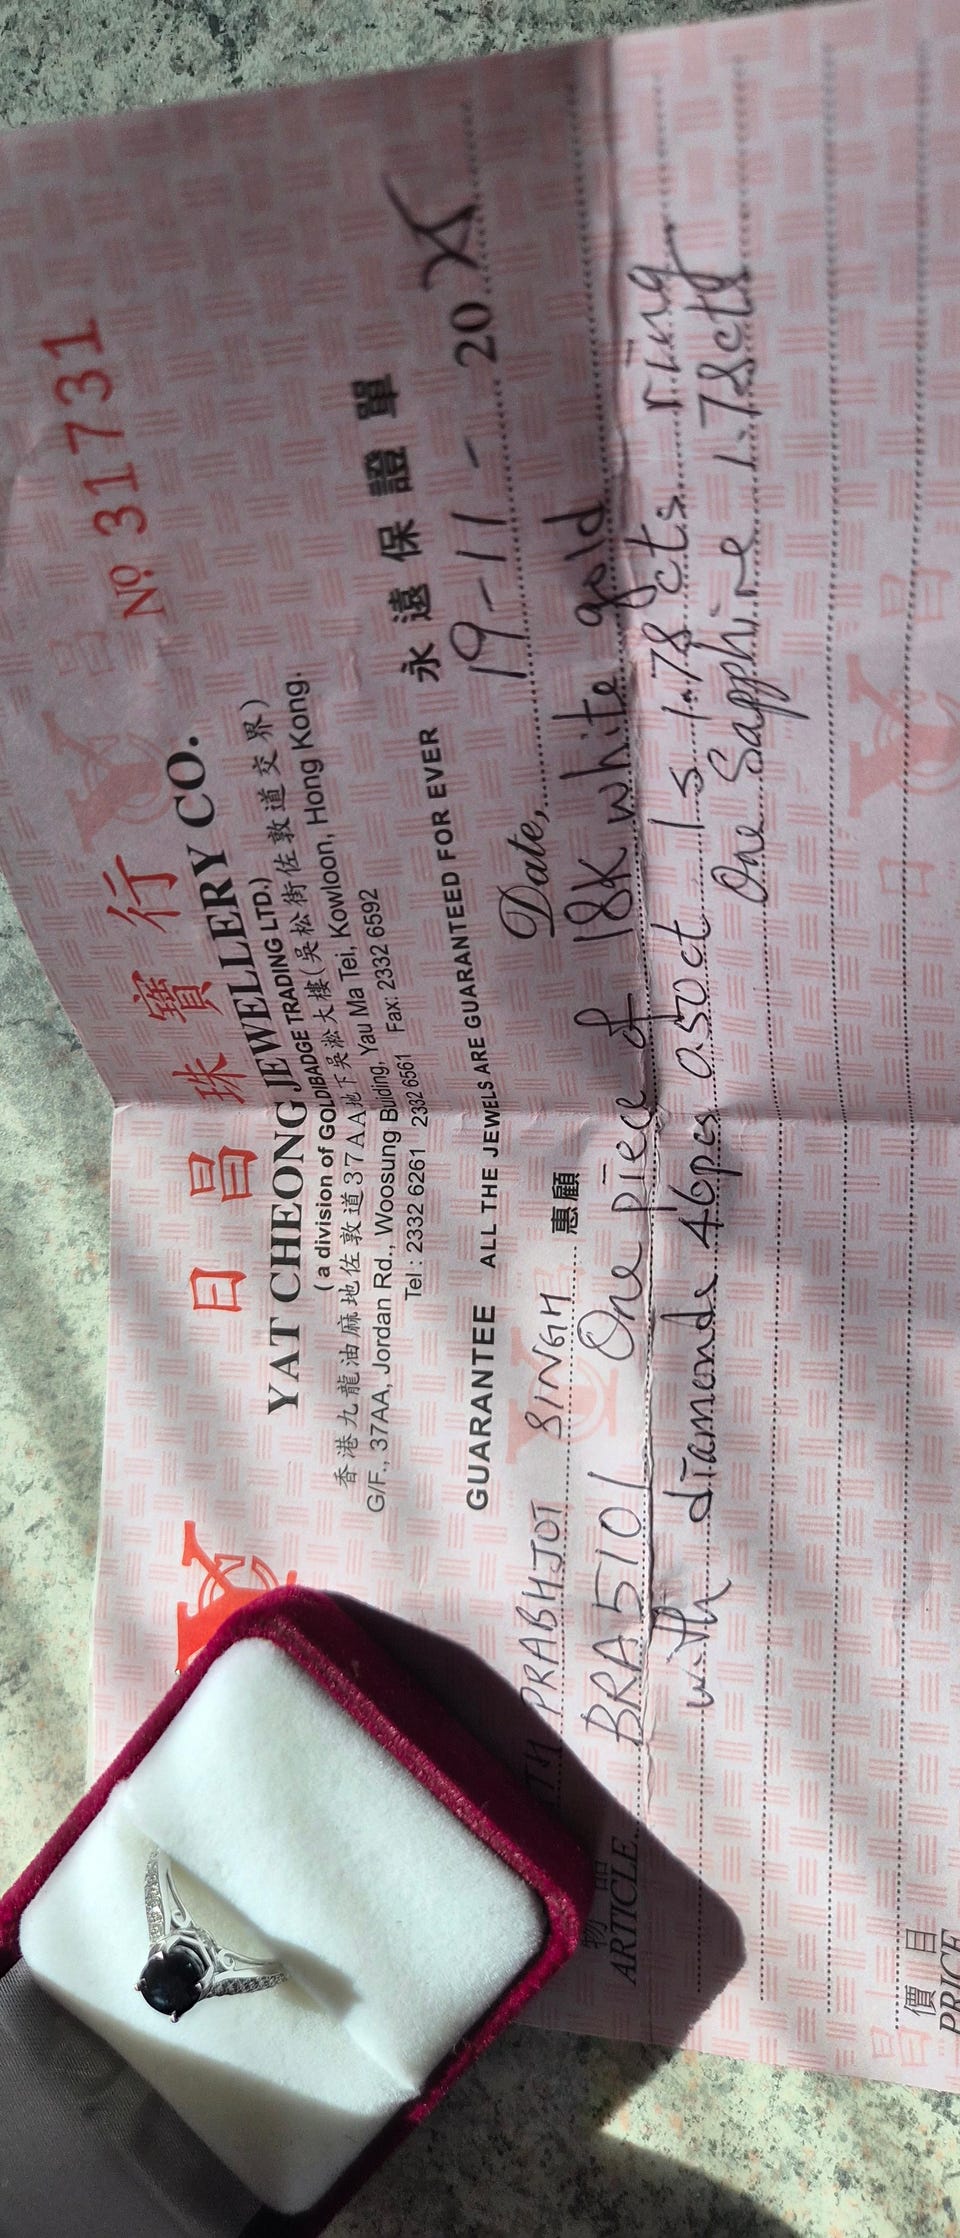 No 31731
日昌珠寶行
YAT CHEONG JEWELLERY CO.
( a division of GOLDIBADGE TRADING LTD.)
香港九龍油麻地佐敦道37AA地下吳淞大樓(吳松街佐敦道交界)
G/F., 37AA, Jordan Rd., Woosung Building, Yau Ma Tei, Kowloon, Hong Kong.
Tel : 2332 6261 2332 6561 Fax: 2332 6592
GUARANTEE ALL THE JEWELS ARE GUARANTEED FOR EVER 永遠保證單
Date, 19-11-2025
PRABHJOT SINGH 惠顧
物品
ARTICLE BRA5101 One piece of 18K white gold
with diamonds 46pcs 0.50ct 1s 1.78cts ring
One Sapphire 1.78cts
價目
PRICE